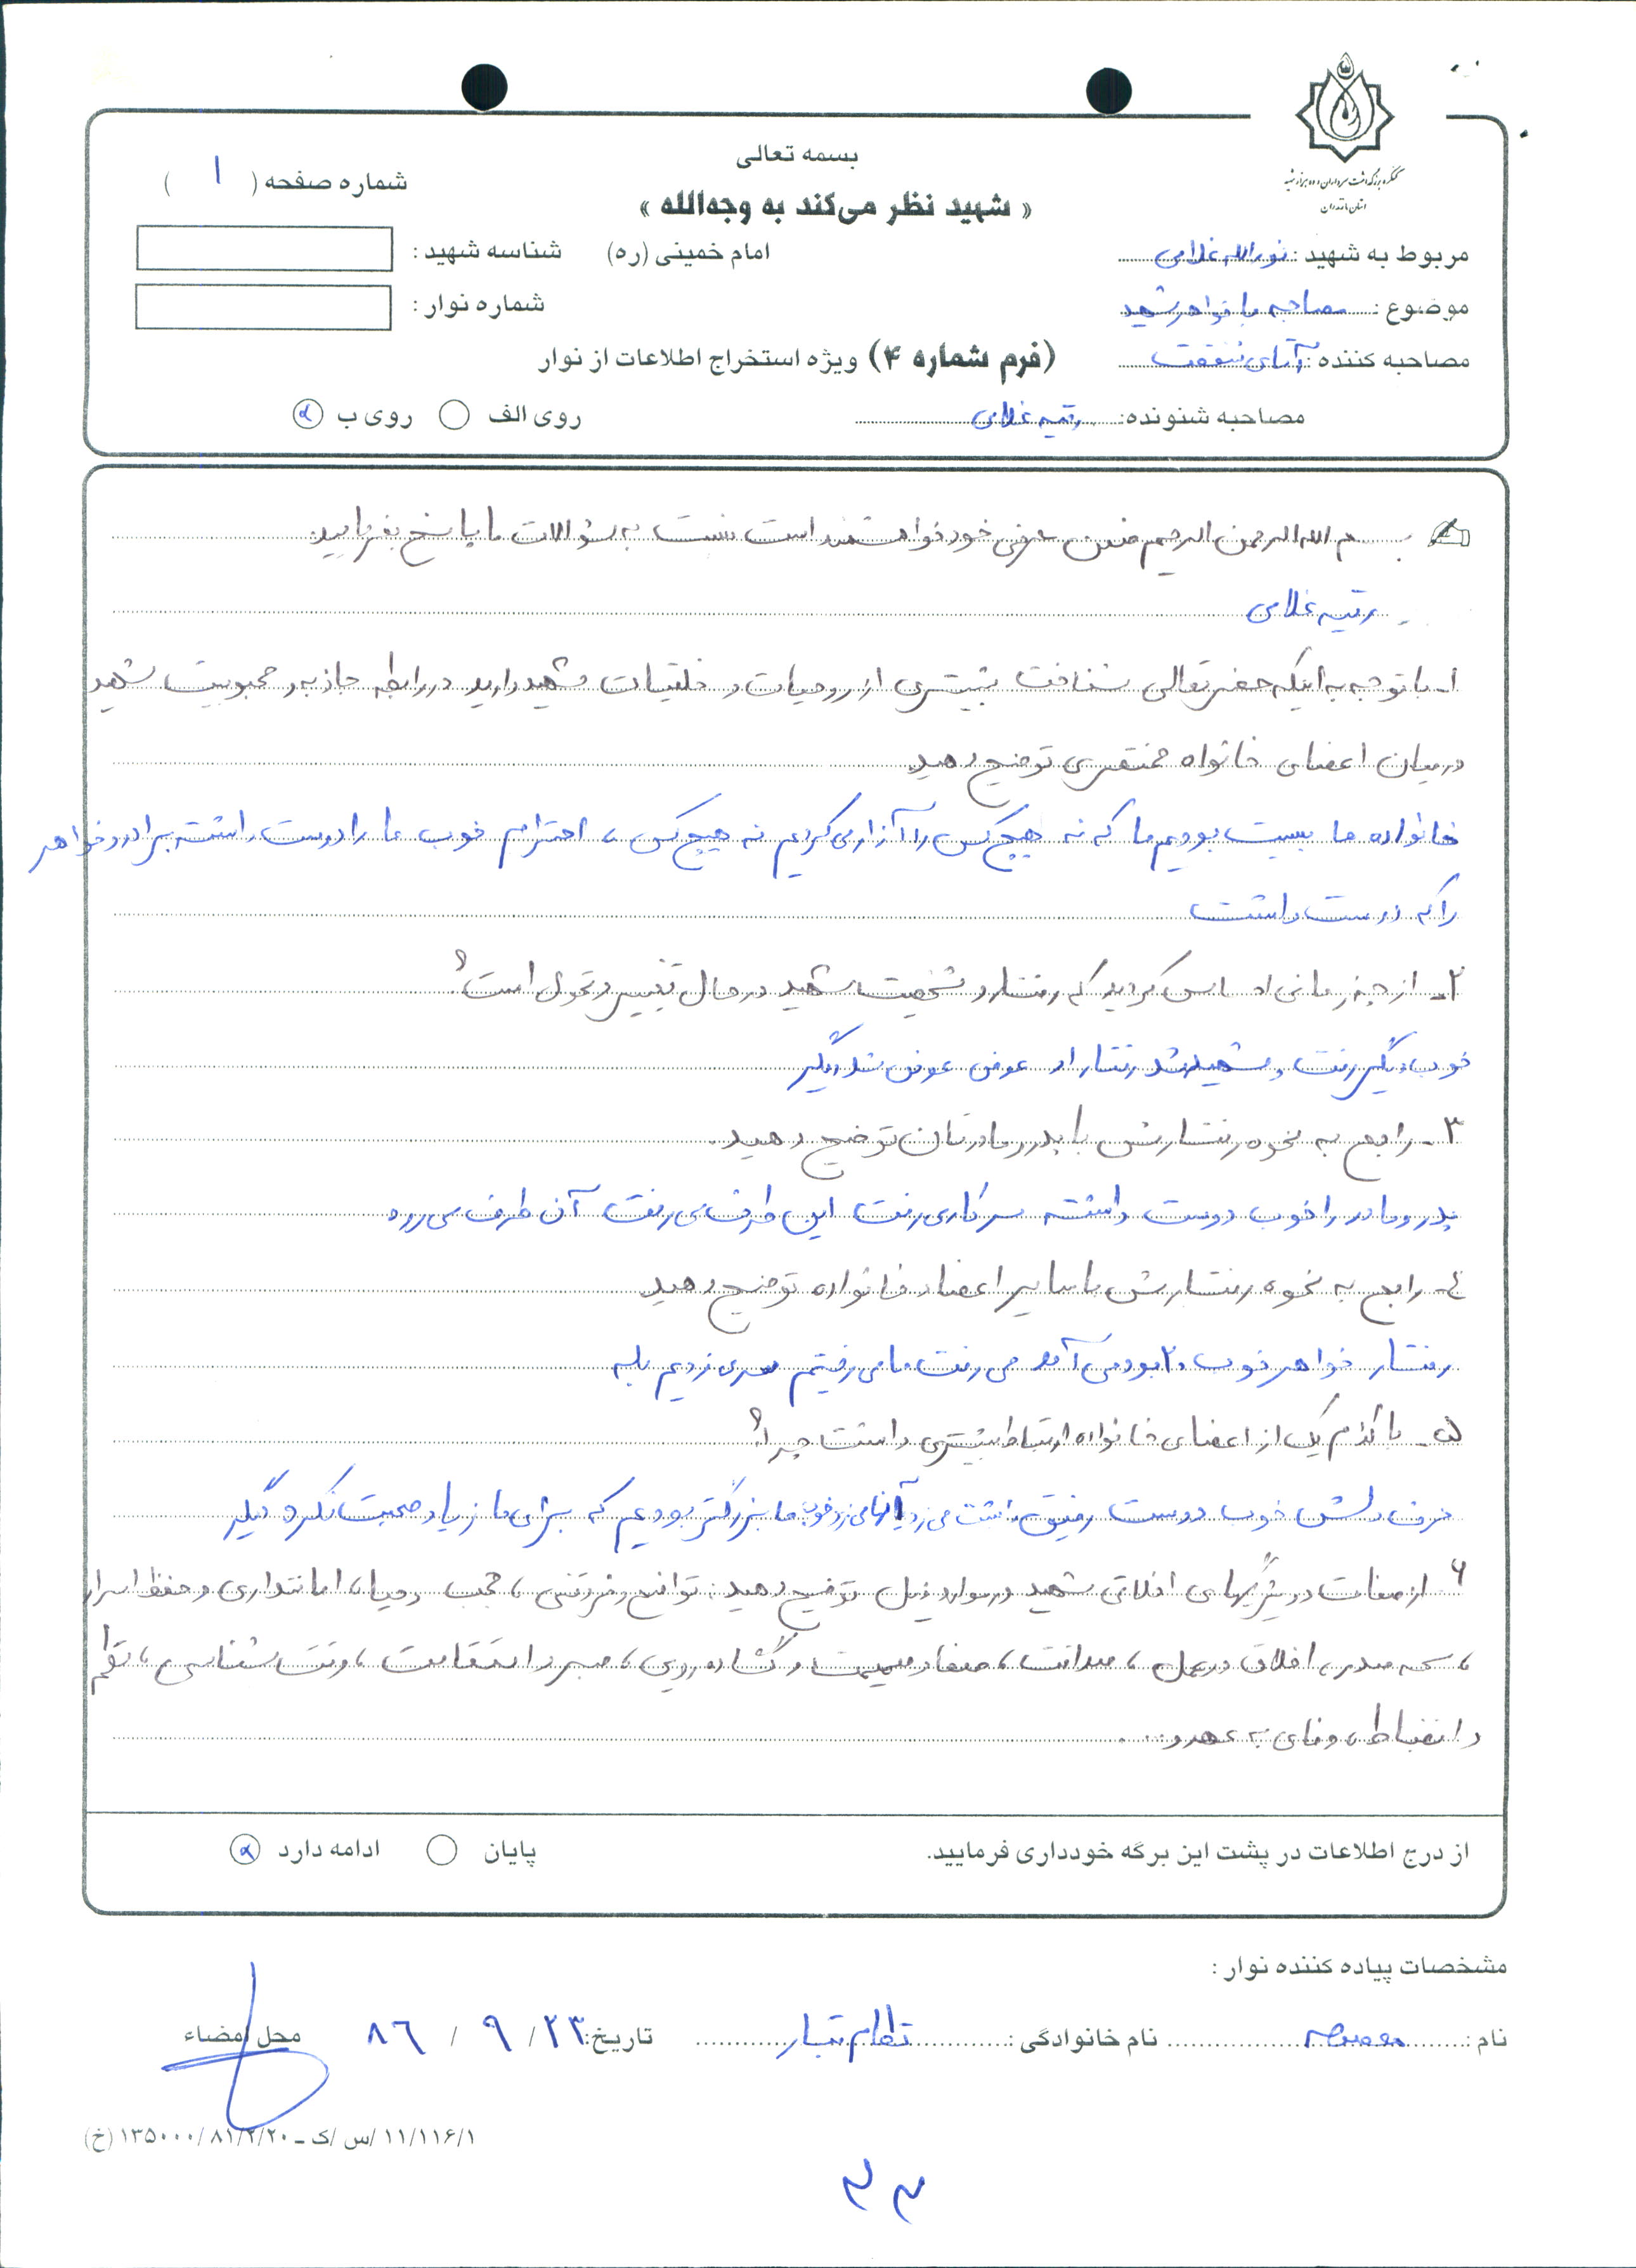 کنگره بزرگداشت سرداران و ده هزار شهید
استان مازندران
بسمه تعالی
« شهید نظر می‌کند به وجه‌الله »
شماره صفحه ( ۱ )
مربوط به شهید : نورالله غلامی
امام خمینی (ره)
شناسه شهید :
موضوع : مصاحبه با خواهر شهید
شماره نوار :
مصاحبه کننده : آقای شفقت
(فرم شماره ۴) ویژه استخراج اطلاعات از نوار
مصاحبه شنونده: رقیه غلامی
روی الف روی ب
بسم الله الرحمن الرحیم ضمن معرفی خود خواهشمند است نسبت به سؤالات ما پاسخ بفرمایید.
ـ رقیه غلامی
۱ـ با توجه به اینکه حضرتعالی شناخت بیشتری از روحیات و خلقیات شهید دارید در رابطه جاذبه و محبوبیت شهید
در میان اعضای خانواده مختصری توضیح دهید
خانواده ما بودیم ما که نه هیچ کس را آزار می کردیم نه هیچ کس ، احترام خوب ما را دوست داشت برادر و خواهر
را که دوست داشت
۲ـ از چه زمانی احساس کردید که رفتار و شخصیت شهید در حال تغییر و تحول است؟
خوب دیگر رفت و شهید شد رفتار او عوض عوض شد دیگر
۳ـ راجع به نحوه رفتارش با پدر و مادرتان توضیح دهید.
پدر و مادر را خوب دوست داشته سر کار می رفت این طرف می رفت آن طرف می رود
٤ـ راجع به نحوه رفتارش با سایر اعضاء خانواده توضیح دهید
رفتار خواهر خوب ۲۰ بود می آمد می رفت ما می رفتیم سر می زدیم بله
۵ـ با کدام یک از اعضای خانواده ارتباط بیشتری داشت چرا؟
حرف دلش خوب دوست رفیق داشت می زد آنها می زد خوب ما بزرگتر بودیم که برای ما زیاد صحبت نکرد دیگر
۶ از صفات و ویژگیهای اخلاقی شهید در موارد ذیل توضیح دهید: تواضع و فروتنی ، حجب و حیا ، امانتداری و حفظ اسرار
، سعه صدر ، اخلاق در عمل ، صداقت ، صفا و صمیمیت و گشاده رویی ، صبر و استقامت ، وقت شناسی ، نظم
و انضباط ، وفای به عهد و ...
از درج اطلاعات در پشت این برگه خودداری فرمایید.
پایان ادامه دارد
مشخصات پیاده کننده نوار :
نام : معصومه نام خانوادگی : نظام تبار تاریخ: ۲۳ / ۹ / ۸٦ محل امضاء
۱۱/۱۱۶/۱ /س /ک ـ ۸۱/۲/۲۰ /۱۳۵۰۰۰ (خ)